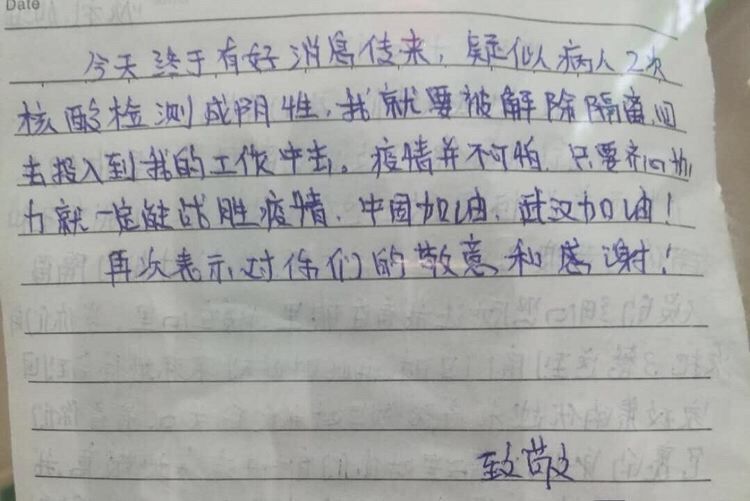 Date
今天终于有好消息传来，疑似病人2次
核酸检测成阴性，我就要被解除隔离，回
去投入到我的工作中去。疫情并不可怕，只要齐心协
力就一定能战胜疫情，中国加油，武汉加油！
再次表示对你们的敬意和感谢！
致敬